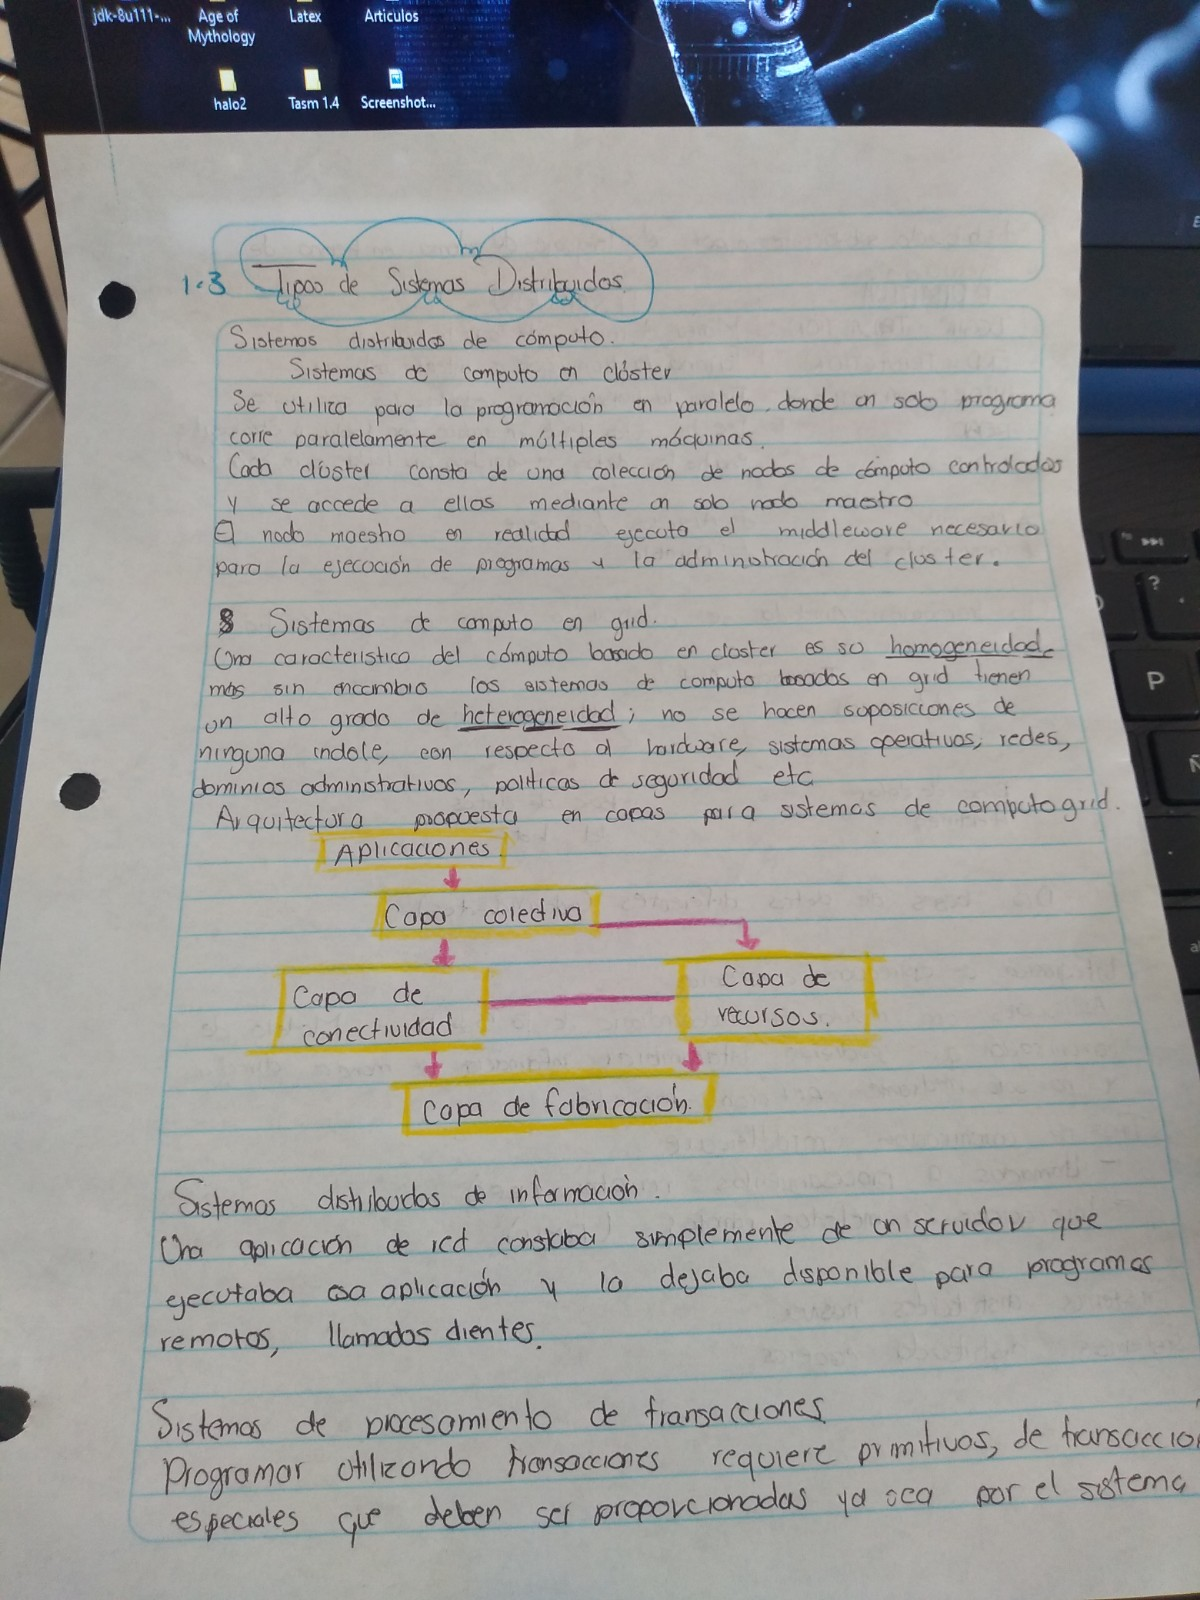 jdk-8u111-...
Age of Mythology
Latex
Articulos
halo2
Tasm 1.4
Screenshot...
1.3 Tipos de Sistemas Distribuidos
Sistemas distribuidos de cómputo.
Sistemas de computo en clúster
Se utiliza para la programación en paralelo. donde un solo programa
corre paralelamente en múltiples máquinas.
Cada clúster consta de una colección de nodos de cómputo controlados
y se accede a ellos mediante un solo nodo maestro
El nodo maestro en realidad ejecuta el middleware necesario
para la ejecución de programas y la administración del cluster.
Sistemas de computo en grid.
Una característica del cómputo basado en cluster es su homogeneidad,
mas sin encambio los sistemas de computo basados en grid tienen
un alto grado de heterogeneidad; no se hacen suposiciones de
ninguna indole, con respecto al hardware, sistemas operativos, redes,
dominios administrativos, políticas de seguridad etc
Arquitectura propuesta en capas para sistemas de computo grid.
Aplicaciones.
Capa colectiva
Capa de conectividad
Capa de recursos.
Capa de fabricación.
Sistemas distribuidos de información.
Una aplicación de red constaba simplemente de un servidor que
ejecutaba esa aplicación y la dejaba disponible para programas
remotos, llamados clientes.
Sistemas de procesamiento de transacciones
Programar utilizando transacciones requiere primitivos, de transaccio
especiales que deben ser proporcionadas ya sea por el sistema
P
?